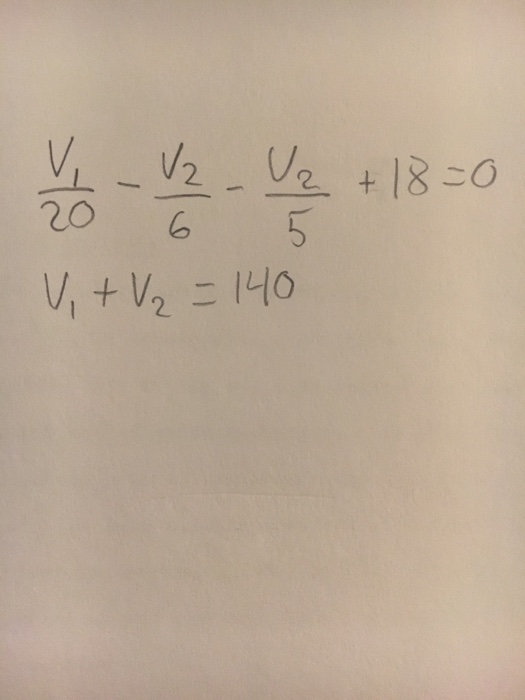 V₁/20 - V₂/6 - V₂/5 + 18 = 0
V₁ + V₂ = 140